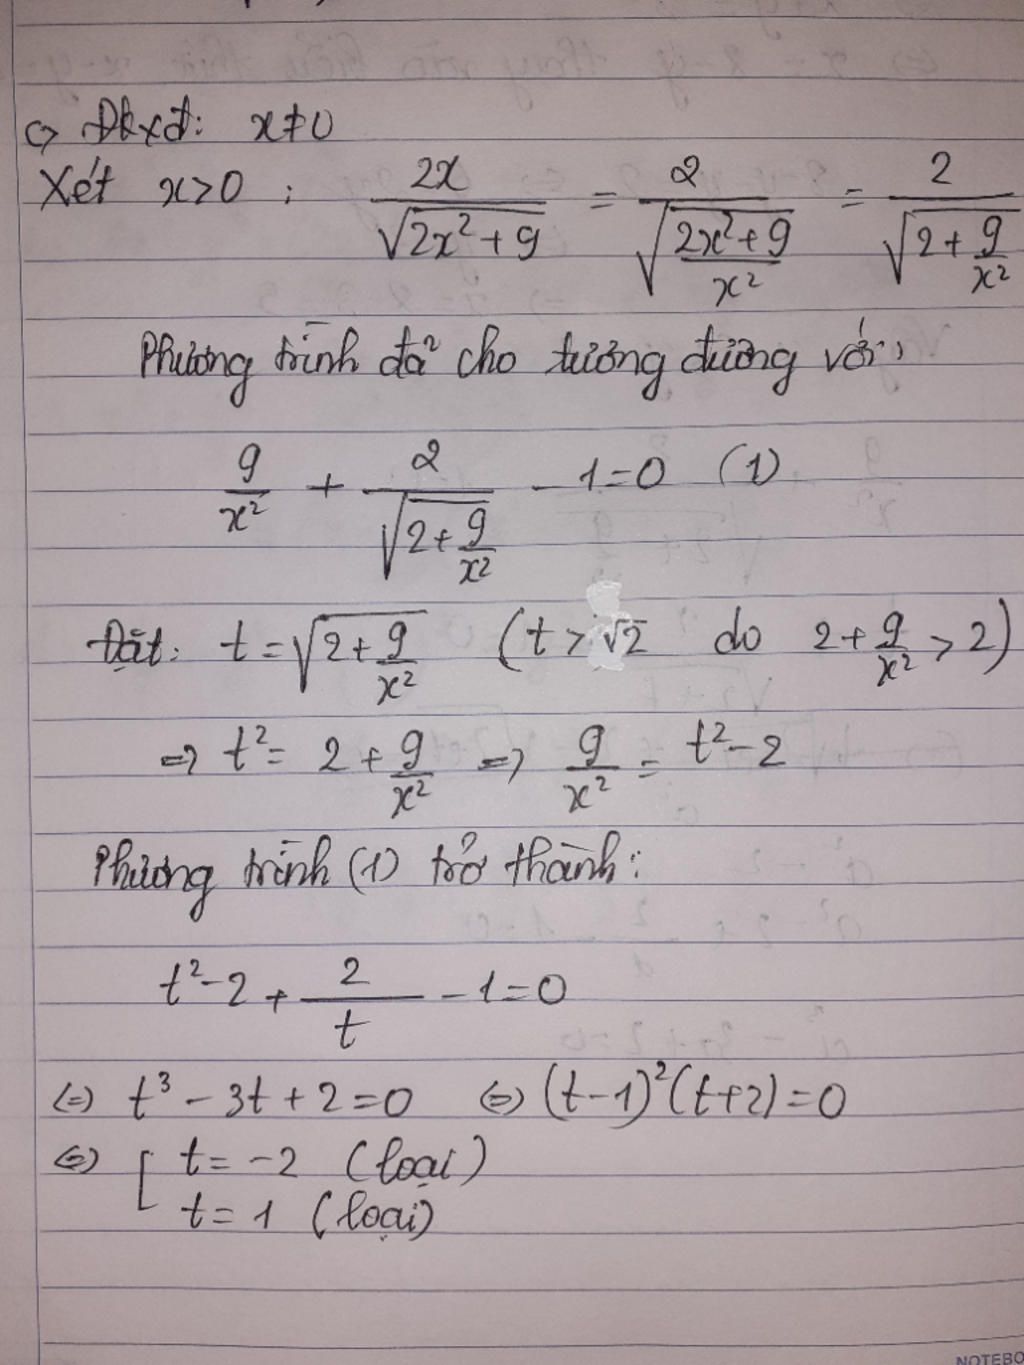 => Đkxđ: x≠0
Xét x>0 : 2x/√(2x²+9) = 2/√((2x²+9)/x²) = 2/√(2+9/x²)
Phương trình đã cho tương đương với:
9/x² + 2/√(2+9/x²) - 1=0 (1)
Đặt: t = √(2+9/x²) (t > √2 do 2+9/x² > 2)
=> t² = 2+9/x² => 9/x² = t²-2
Phương trình (1) trở thành:
t²-2 + 2/t - 1=0
<=> t³ - 3t + 2 = 0 <=> (t-1)²(t+2)=0
<=> [ t = -2 (loại)
t = 1 (loại)
NOTEBO